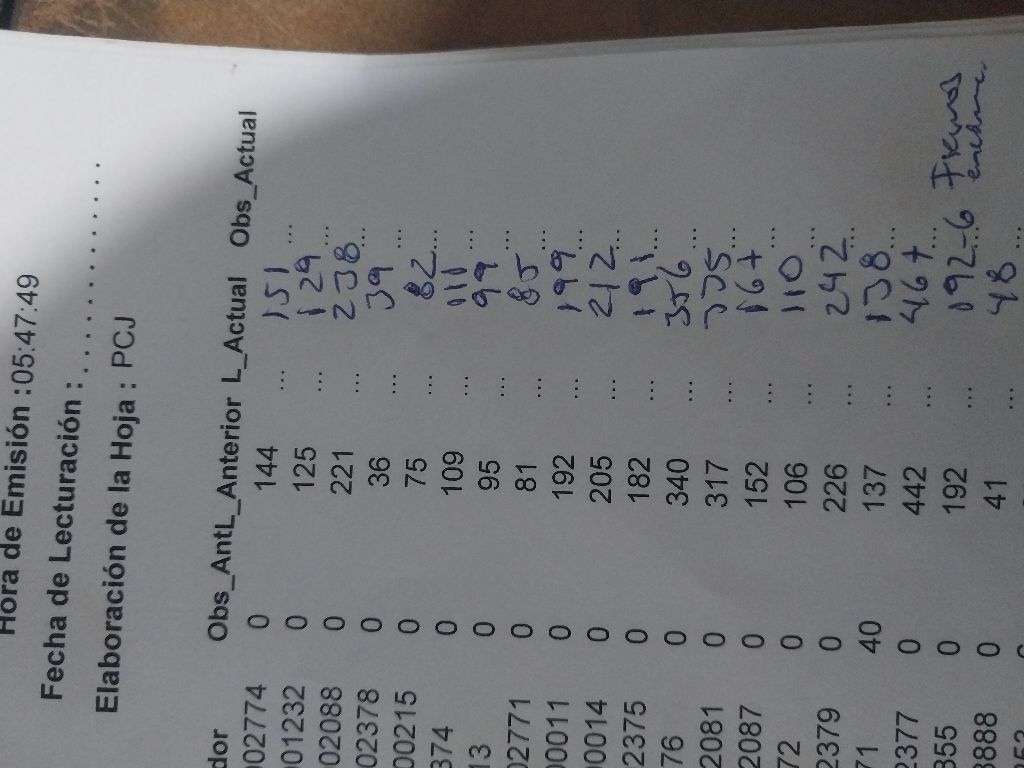 Hora de Emisión :05:47:49
Fecha de Lecturación :.............
Elaboración de la Hoja : PCJ
dor Obs_AntL_Anterior L_Actual Obs_Actual
002774 0 144 ... 151 ...
001232 0 125 ... 129 ...
02088 0 221 ... 238 ...
02378 0 36 ... 39 ...
00215 0 75 ... 82 ...
374 0 109 ... 111 ...
13 0 95 ... 99 ...
02771 0 81 ... 85 ...
00011 0 192 ... 199 ...
00014 0 205 ... 212 ...
2375 0 182 ... 191 ...
76 0 340 ... 356 ...
2081 0 317 ... 335 ...
2087 0 152 ... 167 ...
72 0 106 ... 110 ...
2379 0 226 ... 242 ...
71 40 137 ... 138 ...
2377 0 442 ... 467 ...
355 0 192 ... 192-6 ...
3888 0 41 ... 48 ...